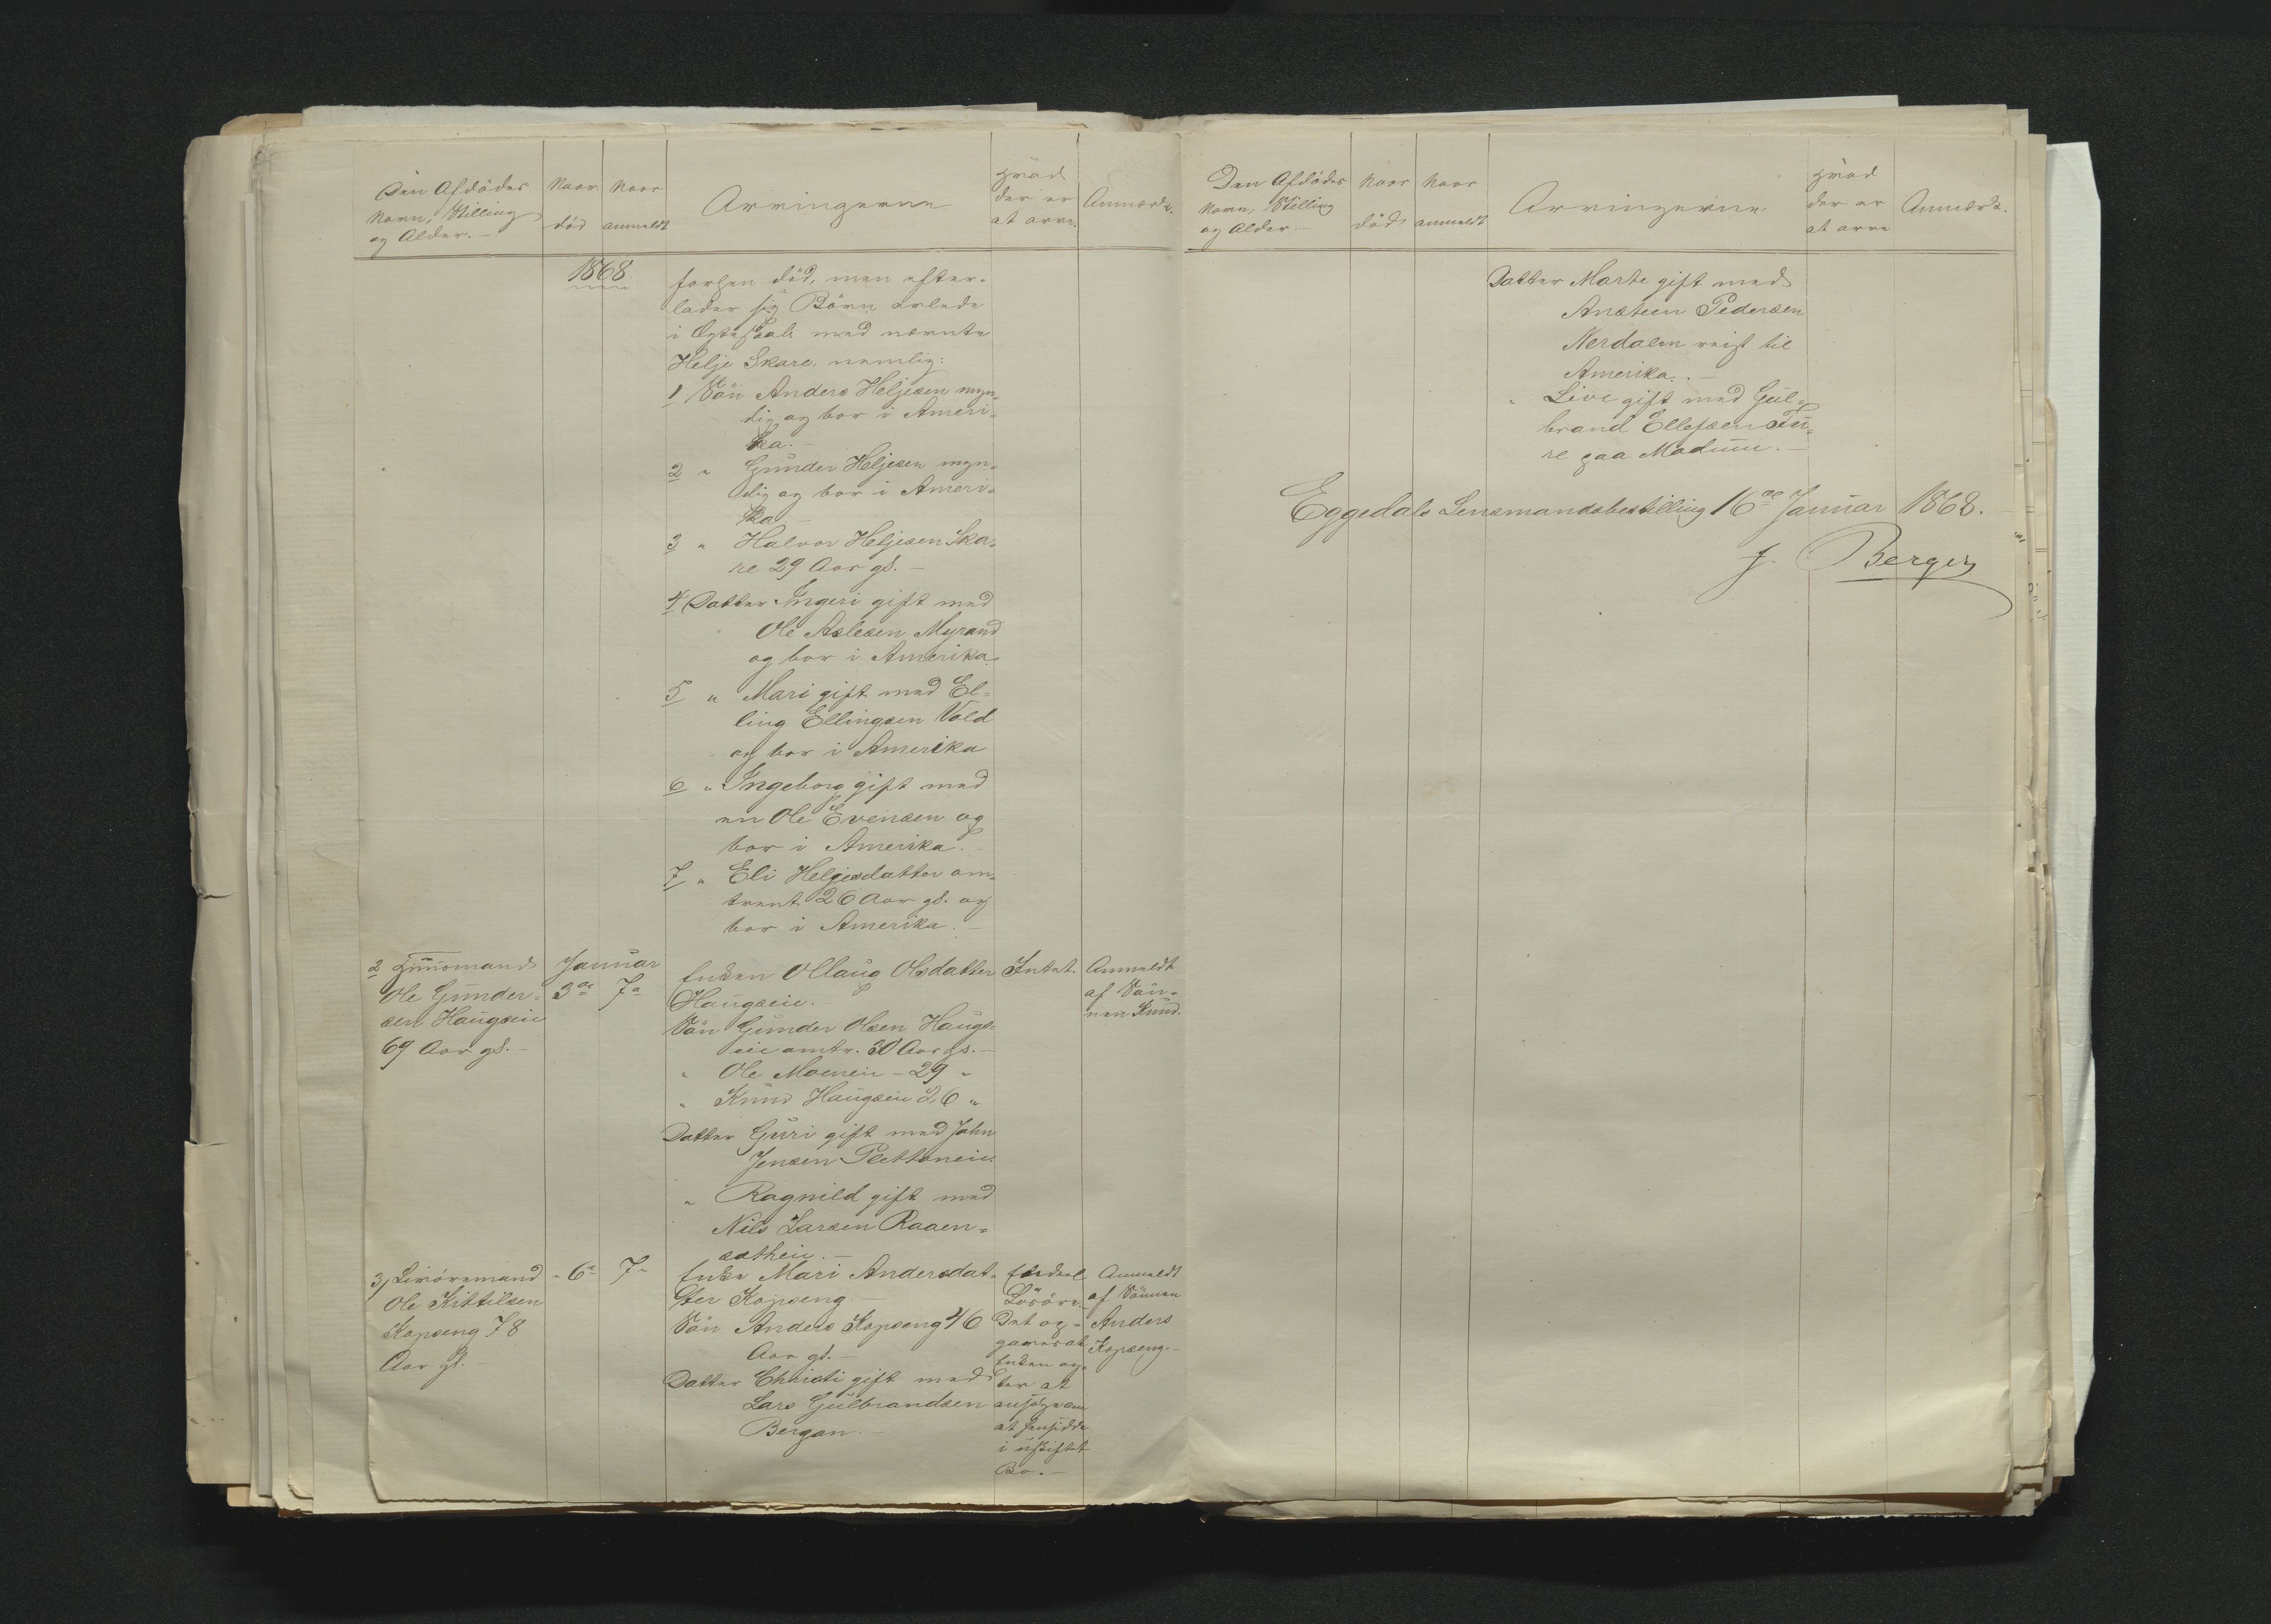 Den Afdödes
Navn, Stilling
og Alder.
Naar
död
Naar
anmeldt
Arvingerne
Hvad
der er
at arve.
Anmærk.
1868
forhen död, men efter-
lader sig Börn avlede
i Egteskab med nævnte
Helje Skare, nemlig:
1 Sön Anders Heljesen myn-
dig og bor i Ameri-
ka. -
2 " Gunder Heljesen myn-
dig og bor i Ameri-
ka -
3 " Halvor Heljesen Ska-
re 29 Aar gl. -
4 Datter Ingeri gift med
Ole Aslesen Myrand
og bor i Amerika.
5 " Mari gift med El-
ling Ellingsen Vold
og bor i Amerika
6 " Ingeborg gift med
en Ole Evensen og
bor i Amerika. -
7 " Eli Heljesdatter om-
trent 26 Aar gl. og
bor i Amerika. -
2 Huusmand
Ole Gunder-
sen Haugseie
69 Aar gl. -
Januar
3de 7de
Enken Ollaug Olsdatter
Haugseie. -
Sön Gunder Olsen Haugs-
eie omtr. 30 Aar gl. -
" Ole Moeneie - 29 "
" Knud Haugseie 26 "
Datter Guri gift med John
Jensen Plettaneie
" Ragnild gift med
Nils Larsen Raaen-
sætheie. -
Intet.
Anmeldt
af Sön-
nen Knud.
3, Livöremand
Ole Kittilsen
Kopseng 78
Aar gl. -
" 6te 7de
Enke Mari Andersdat-
ter Kopseng. -
Sön Anders Kopseng 46
Aar gl. -
Datter Christi gift med
Lars Gulbrandsen
Bergan. -
Endeel
Lösöre. -
Det op-
gaves at
Enken ag-
ter at
ansöge om
at hensidde
i uskiftet
Bo. -
Anmeldt
af Sönnen
Anders
Kopseng. -
Den Afdödes
Navn, Stilling
og Alder. -
Naar
död
Naar
anmeldt
Arvingerne
Hvad
der er
at arve
Anmærk.
Datter Marte gift med
Ansteen Pedersen
Nerdalen reist til
Amerika. -
" Live gift med Gul-
brand Ellefsen Fu-
re paa Modum. -
Eggedals Lensmandsbestilling 16de Januar 1868.
J. Berger